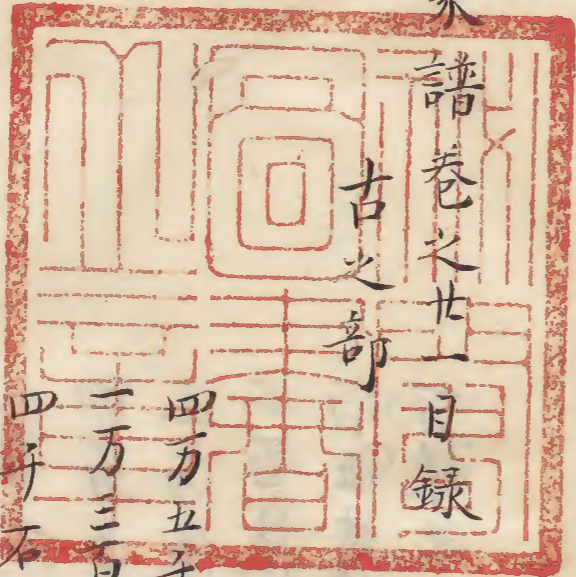 家譜巻之廿一目録
古之部
四万五千
一万三百
四千石